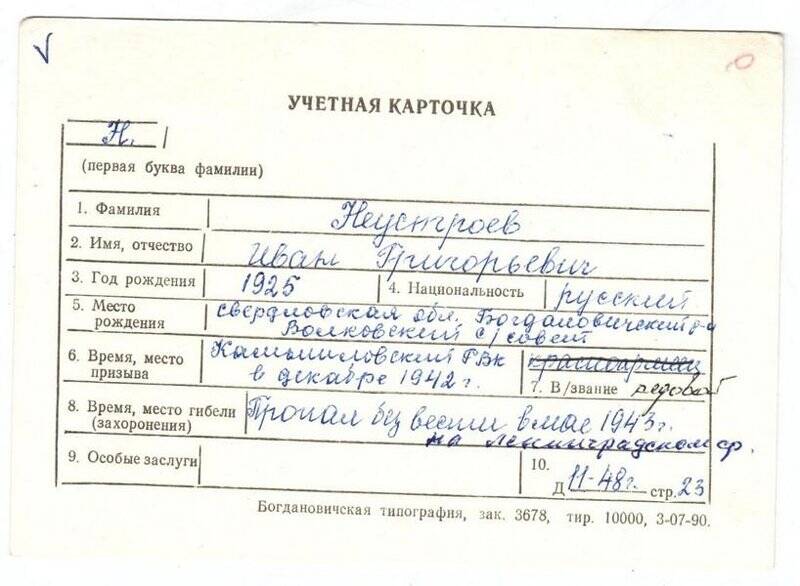 УЧЕТНАЯ КАРТОЧКА
Н.
(первая буква фамилии)
1. Фамилия Неустроев
2. Имя, отчество Иван Григорьевич
3. Год рождения 1925 4. Национальность русский
5. Место рождения свердловская обл. Богдановичский р-н
Волковский с/совет
6. Время, место призыва Камышловский РВК
в декабре 1942 г.
красноармеец
7. В/звание рядовой
8. Время, место гибели (захоронения) Пропал без вести в мае 1943 г.
на Ленинградском фр.
9. Особые заслуги
10.
Д 11-48г. стр. 23
Богдановичская типография, зак. 3678, тир. 10000, 3-07-90.